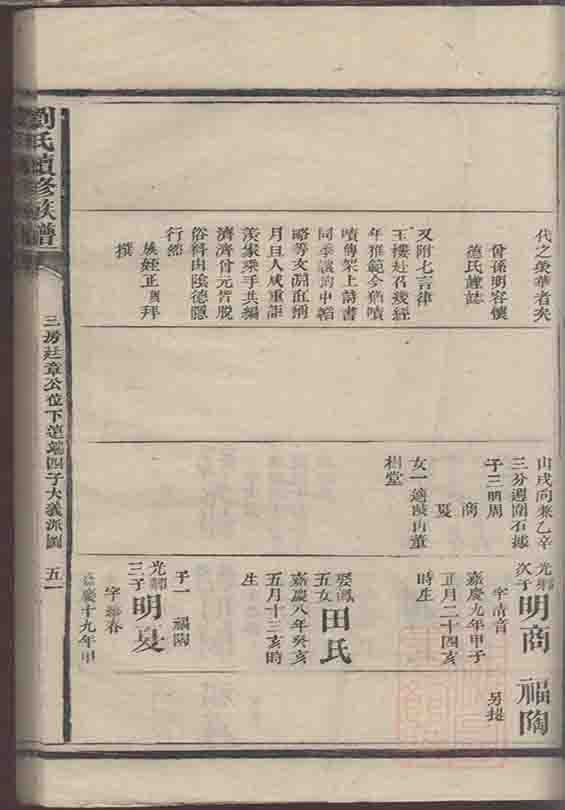 劉氏續修族譜
三房廷章公位下逵端四子大義派圖 五一
代之榮華者矣
曾孫明容懷
德氏謹誌
又附七言律
玉樓赴召幾經
年雅範今猶嘖
嘖傳架上詩書
同季讀胸中韜
略等文淵直綱
月旦人咸重詎
羡家乘手共編
濟濟曾元皆脫
俗科由陰德隱
行然
族姪正 拜
撰
山戌向兼乙辛
三分週圍石
子三明周
商
夏
女一適 董
樹堂
光 次子 明商 福陶
字清音 另提
嘉慶九年甲子
正月二十四亥
時生
娶 五女 田氏
嘉慶八年癸亥
五月十三亥時
生
子一 福陶
光 三子 明夏
字 春
嘉慶十九年甲